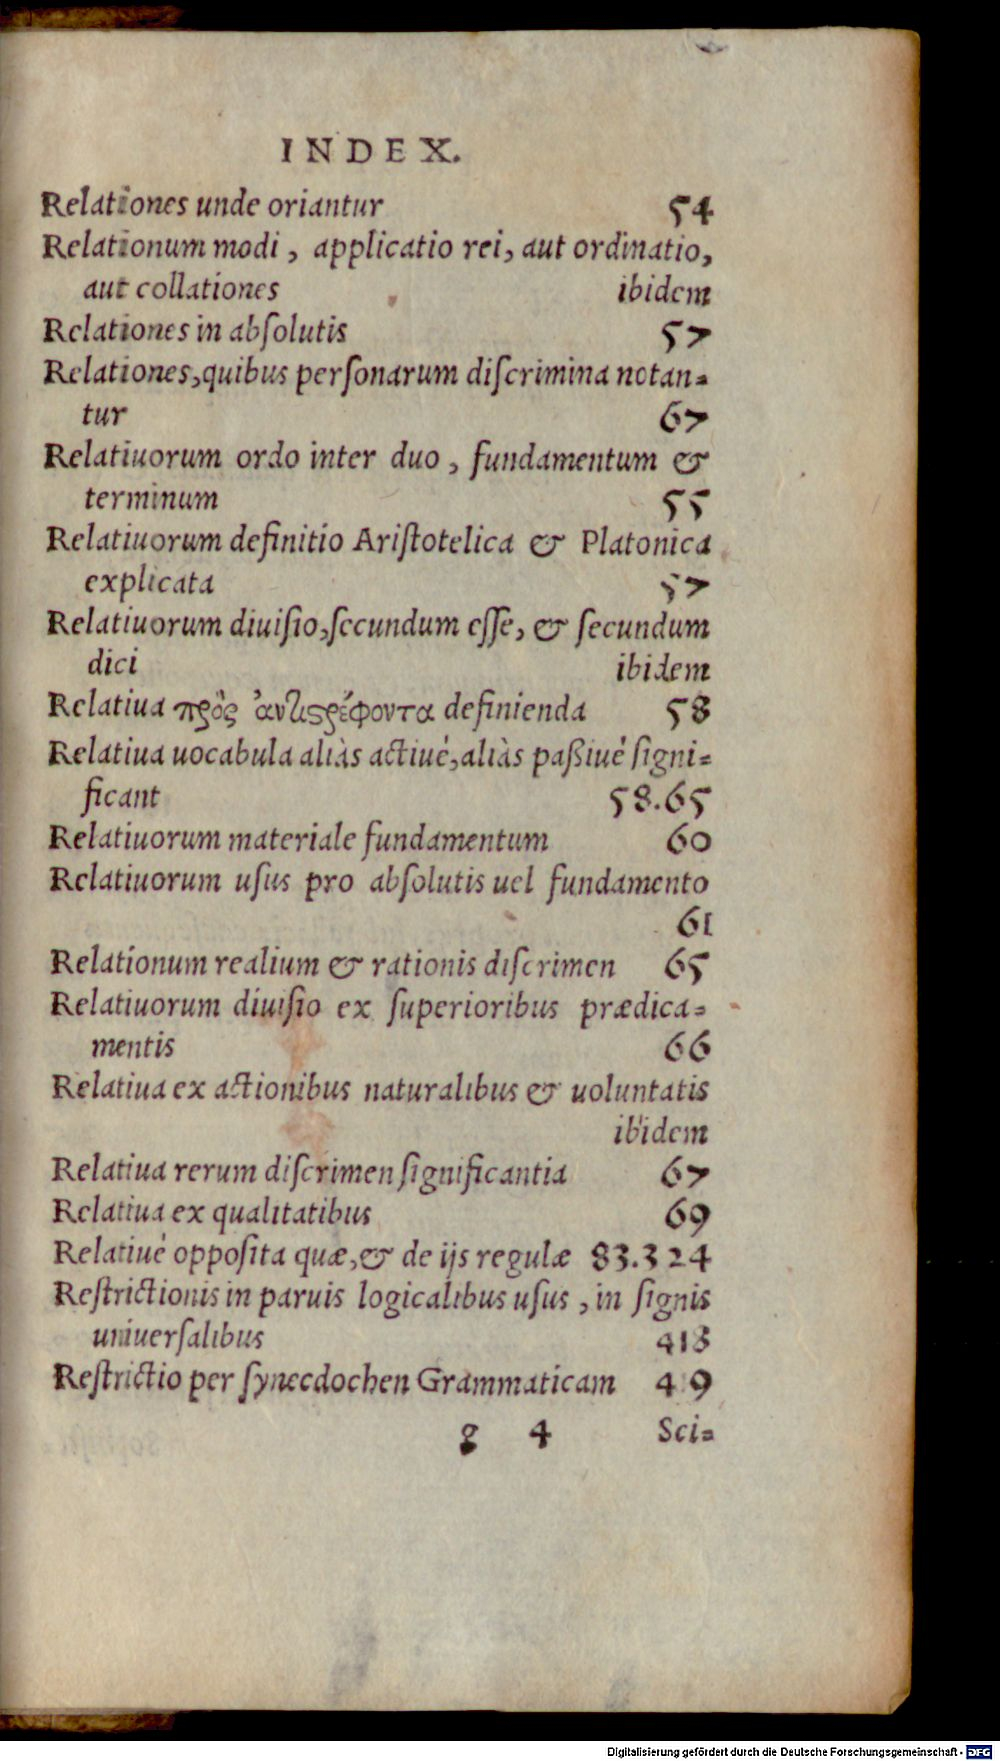 INDEX.
Relationes unde oriantur 54
Relationum modi, applicatio rei, aut ordinatio,
aut collationes ibidem
Relationes in abſolutis 57
Relationes, quibus perſonarum diſcrimina notan=
tur 67
Relatiuorum ordo inter duo, fundamentum &
terminum 55
Relatiuorum definitio Ariſtotelica & Platonica
explicata 57
Relatiuorum diuiſio, ſecundum eſſe, & ſecundum
dici ibidem
Relatiua πρὸς ἀντιϛρέφοντα definienda 58
Relatiua uocabula aliàs actiué, aliàs paßiué ſigni=
ficant 58.65
Relatiuorum materiale fundamentum 60
Relatiuorum uſus pro abſolutis uel fundamento
61
Relationum realium & rationis diſcrimen 65
Relatiuorum diuiſio ex ſuperioribus prædica=
mentis 66
Relatiua ex actionibus naturalibus & uoluntatis
ibidem
Relatiua rerum diſcrimen ſignificantia 67
Relatiua ex qualitatibus 69
Relatiué oppoſita quæ, & de ijs regulæ 83.324
Reſtrictionis in paruis logicalibus uſus, in ſignis
uniuerſalibus 418
Reſtrictio per ſynecdochen Grammaticam 419
g 4 Sci=
Digitalisierung gefördert durch die Deutsche Forschungsgemeinschaft - DFG